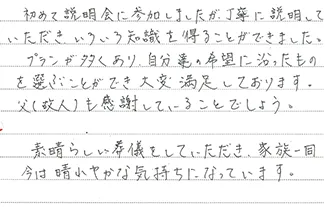 初めて説明会に参加しましたが、丁寧に説明して
いただき、いろいろ知識を得ることができました。
プランが多くあり、自分達の希望に沿ったもの
を選ぶことができ大変満足しております。
父(故人)も感謝していることでしょう。
素晴らしい葬儀をしていただき、家族一同
今は晴れやかな気持ちになっています。